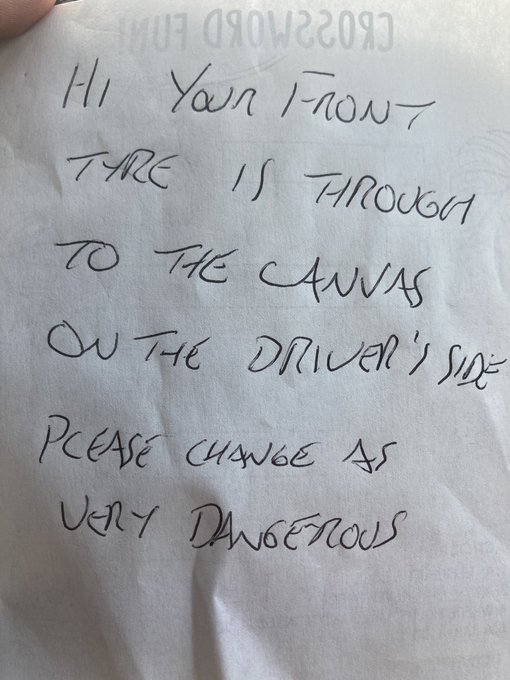 CROSSWORD FUN!
HI YOUR FRONT
TYRE IS THROUGH
TO THE CANVAS
ON THE DRIVER'S SIDE
PLEASE CHANGE AS
VERY DANGEROUS